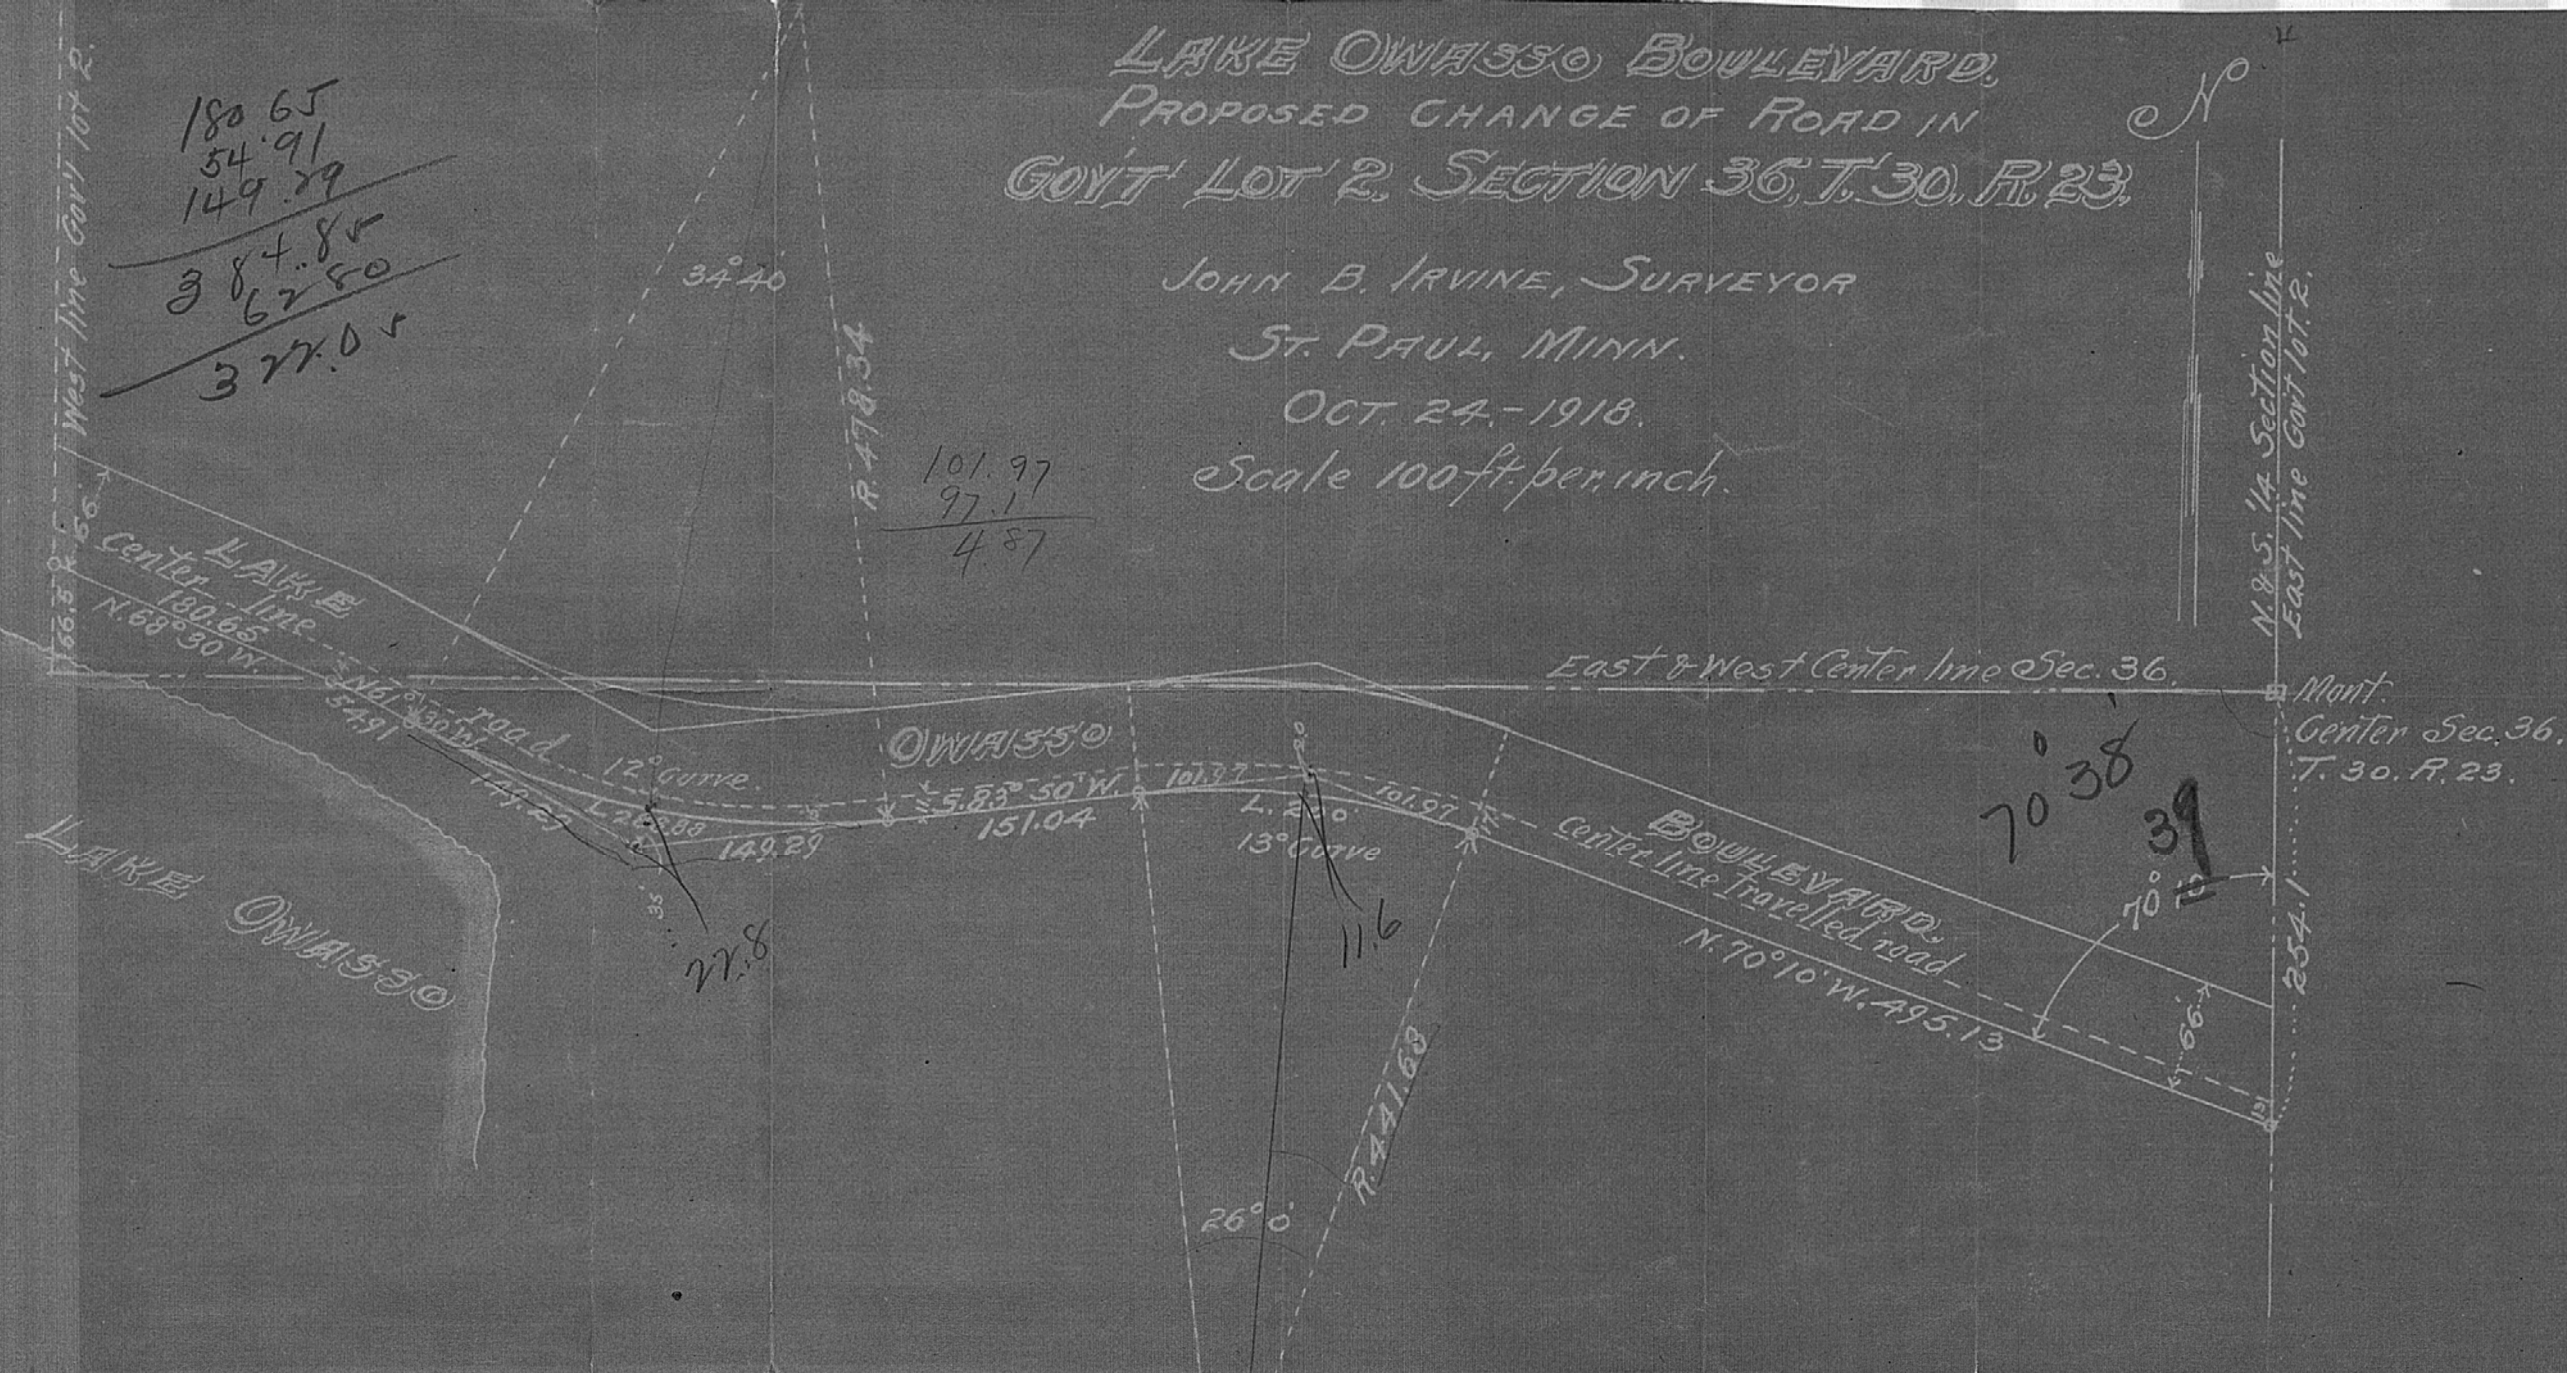 LAKE OWASSO BOULEVARD.
PROPOSED CHANGE OF ROAD IN
GOV'T LOT 2, SECTION 36, T. 30, R. 23.
JOHN B. IRVINE, SURVEYOR
ST. PAUL, MINN.
OCT. 24.-1918.
Scale 100 ft. per. inch.
N
West line Gov't lot 2.
180 65
54.91
149.29
384.85
62 80
322.05
34° 40'
R. 478.34
101.97
97.1
4.87
N. & S. 1/4 Section line
East line Gov't lot 2.
East & West Center line Sec. 36.
Mont.
Center Sec. 36.
T. 30. R. 23.
66'
166.5
LAKE
Center line
180.65
N. 68° 30' W.
N 61° 30' W.
54.91
road
12° Curve.
149.29
149.29
35
22.8
OWASSO
S. 83° 50' W.
151.04
101.97
101.97
13° Curve
11.6
BOULEVARD.
Center line Travelled road
N. 70° 10' W. 495.13
70° 38'
39
70°
66'
254.1
LAKE OWASSO
R. 441.68
26° 0'